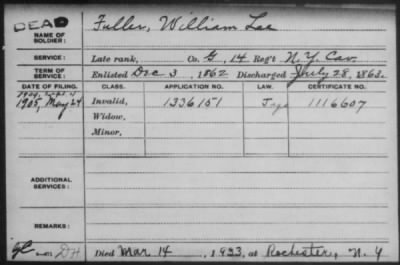 DEAD
NAME OF SOLDIER: Fuller, William Lee
SERVICE: Late rank, Co. G, 14 Reg't N.Y. Cav.
TERM OF SERVICE: Enlisted Dec 3, 1862 Discharged July 28, 1863.
DATE OF FILING. CLASS. APPLICATION NO. LAW. CERTIFICATE NO.
1905, May 24 Invalid, 1336151 1116607
Widow,
Minor,
ADDITIONAL SERVICES:
REMARKS:
Died Mar 14, 1933, at Rochester, N.Y